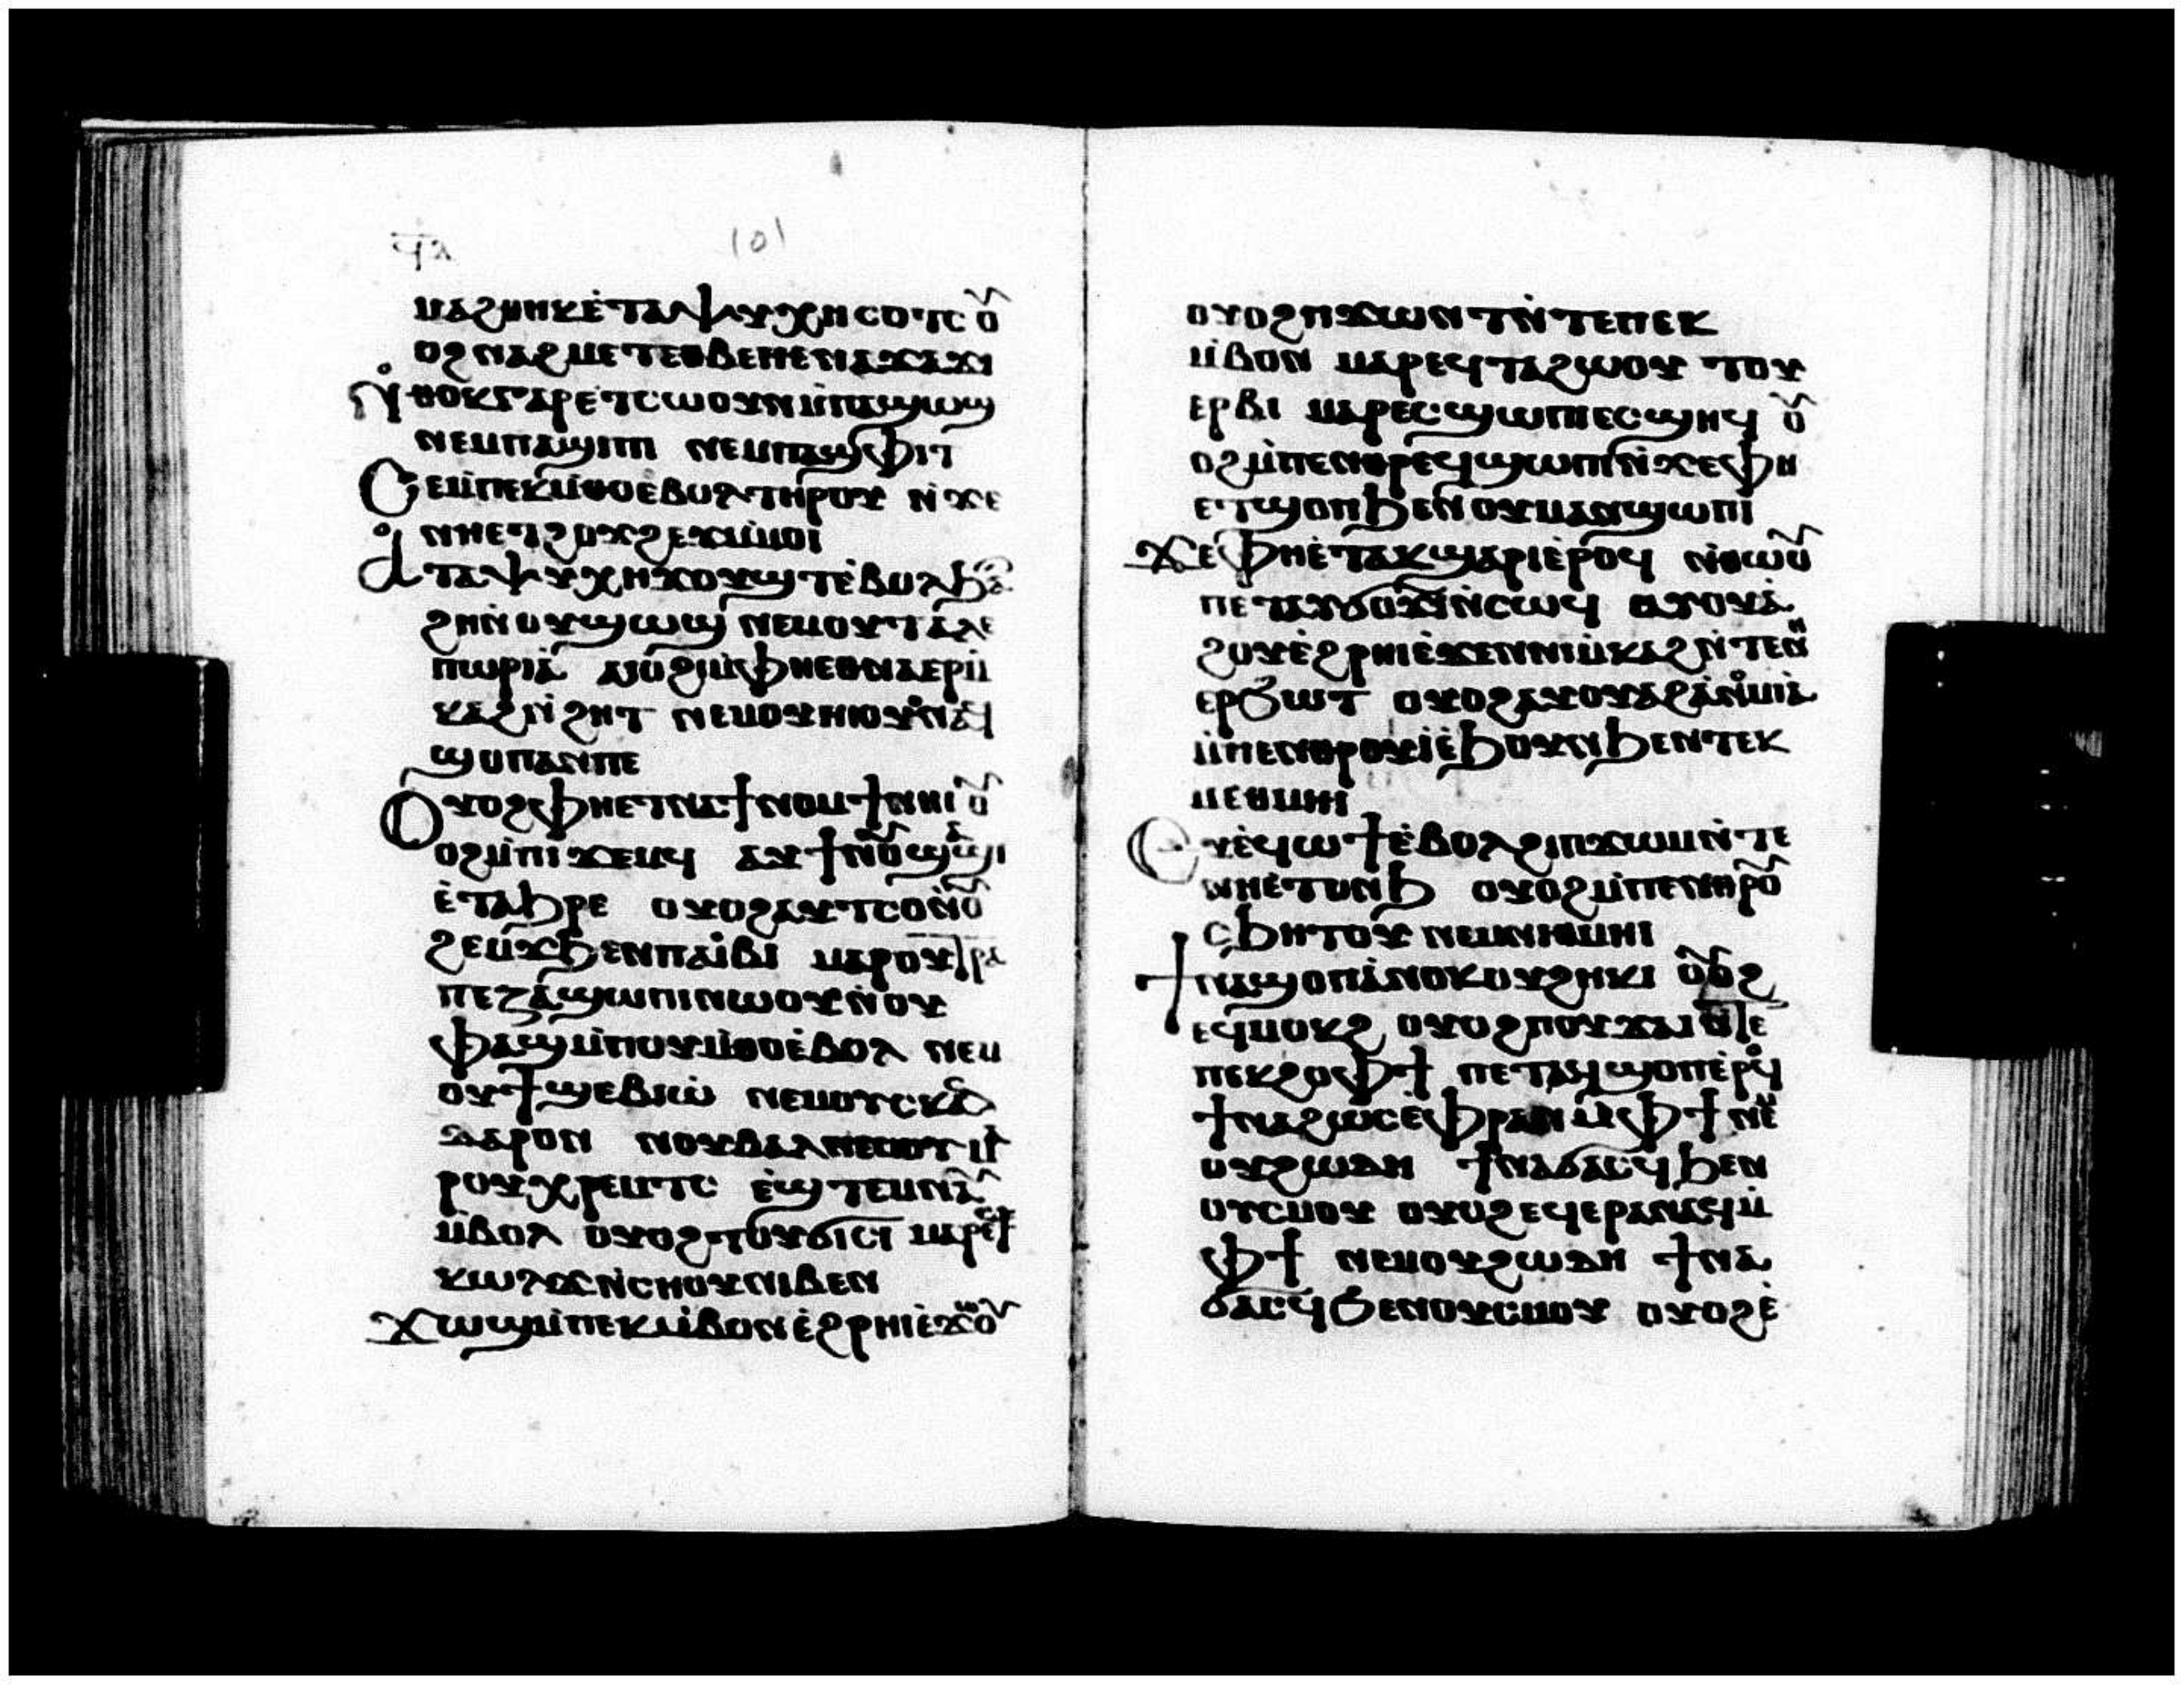 ϥⲁ
101
ⲙⲁϩⲑⲏⲕ ⲉ̀ⲧⲁⲯⲩⲭⲏ ⲥⲟⲧⲥ ⲟⲩ
ⲟϩ ⲛⲁϩⲙⲉⲧ ⲉⲑⲃⲉ ⲛⲉⲛⲁϫⲁϫⲓ
ⲛ̀ⲑⲟⲕ ⲅⲁⲣ ⲉⲧⲥⲱⲟⲩⲛ ⲙ̀ⲡⲁϣⲱϣ
ⲛⲉⲙ ⲡⲁϣⲓⲡⲓ ⲛⲉⲙ ⲡⲁϣⲫⲓⲧ
ⲥⲉⲙ̀ⲡⲉⲕⲙ̀ⲑⲟ ⲉ̀ⲃⲟⲗ ⲧⲏⲣⲟⲩ ⲛ̀ϫⲉ
ⲛⲏⲉⲧϩⲟϫϩⲉϫ ⲙ̀ⲙⲟⲓ
ⲁ̀ ⲧⲁⲯⲩⲭⲏ ϫⲟⲩϣⲧ ⲉ̀ⲃⲟⲗ ϧⲁ
ϩⲏ ⲛ̀ⲟⲩϣⲱϣ ⲛⲉⲙ ⲟⲩⲧⲁⲗⲉ
ⲡⲱⲣⲓⲁ̀ ⲁⲓⲟ̀ϩⲓ ⲙ̀ⲫⲏⲉⲑⲛⲁⲉⲣⲙ̀
ⲕⲁϩ ⲛ̀ϩⲏⲧ ⲛⲉⲙⲏⲓ ⲟⲩⲟϩ ⲛⲁϥ
ϣⲟⲡ ⲁⲛ ⲡⲉ
ⲟⲩⲟϩ ⲫⲏⲉⲧⲛⲁϯⲛⲟⲙϯ ⲛⲏⲓ ⲟⲩ
ⲟϩ ⲙ̀ⲡⲓϫⲉⲙϥ ⲁⲩϯ ⲛⲟⲩϣⲁϣⲓ
ⲉ̀ⲧⲁϧⲣⲉ ⲟⲩⲟϩ ⲁⲩⲧⲥⲟⲓ ⲛ̀ⲟⲩ
ϩⲉⲙϫ ϧⲉⲛ ⲡⲁⲓ̀ⲃⲓ ⲙⲁⲣⲟⲩⲧⲣⲁ
ⲡⲉⲍⲁ ϣⲱⲡⲓ ⲛⲱⲟⲩ ⲛ̀ⲟⲩ
ⲫⲁϣ ⲙ̀ⲡⲟⲩⲙ̀ⲑⲟ ⲉ̀ⲃⲟⲗ ⲛⲉⲙ
ⲟⲩϯϣⲉⲃⲓⲱ̀ ⲛⲉⲙ ⲟⲩⲥⲕⲁⲛ
ⲇⲁⲗⲟⲛ ⲛⲟⲩⲃⲁⲗ ⲙⲁⲣⲟⲩⲉ̀ⲣ
ⲭⲣⲉⲙⲧⲥ ⲉ̀ϣⲧⲉⲙⲛⲁⲩ
ⲙ̀ⲃⲟⲗ ⲟⲩⲟϩ ⲧⲟⲩϭⲓⲥⲓ ⲙⲁⲣⲉⲥ
ⲕⲱⲗϫ ⲛ̀ⲥⲏⲟⲩ ⲛⲓⲃⲉⲛ
ϫⲱϣ ⲙ̀ⲡⲉⲕⲙ̀ⲃⲟⲛ ⲉ̀ϩⲣⲏⲓ ⲉ̀ϫⲱⲟⲩ
ⲟⲩⲟϩ ⲡϫⲱⲛⲧ ⲛ̀ⲧⲉ ⲡⲉⲕ
ⲙ̀ⲃⲟⲛ ⲙⲁⲣⲉϥⲧⲁϩⲱⲟⲩ ⲧⲟⲩ
ⲉⲣⲃⲓ ⲙⲁⲣⲉⲥϣⲱⲡⲓ ⲉⲥϣⲏϥ ⲟⲩ
ⲟϩ ⲙ̀ⲡⲉⲛⲑⲣⲉϥϣⲱⲡⲓ ⲛ̀ϫⲉ ⲫⲏ
ⲉⲧϣⲟⲡ ϧⲉⲛ ⲟⲩⲙⲁⲛ̀ϣⲱⲡⲓ
ϫⲉ ⲫⲏⲉ̀ⲧⲁⲕϣⲁⲣⲓ ⲉ̀ⲣⲟϥ ⲛ̀ⲑⲱⲟⲩ
ⲡⲉⲧⲁⲩϭⲟϫⲓ ⲛ̀ⲥⲱϥ ⲁⲩⲟⲩⲁ
ϩⲟⲩ ⲉ̀ϩⲣⲏⲓ ⲉ̀ϫⲉⲛ ⲛⲓⲙ̀ⲕⲁϩ ⲛ̀ⲧⲉ ⲛⲁ
ⲉⲣϧⲱⲧ ⲟⲩⲟϩ ⲁⲩⲟⲩⲁϩ ⲁⲛⲟⲙⲓⲁ̀
ⲙ̀ⲡⲉⲛⲑⲣⲟⲩⲓ̀ ⲉ̀ϧⲟⲩⲛ ϧⲉⲛ ⲧⲉⲕ
ⲙⲉⲑⲙⲏⲓ
ⲉⲩⲉ̀ϥⲱϯ ⲉ̀ⲃⲟⲗ ϩⲓ ⲡϫⲱⲙ ⲛ̀ⲧⲉ
ⲛⲏⲉⲧⲟⲛϧ ⲟⲩⲟϩ ⲙ̀ⲡⲉⲛⲑⲣⲟⲩ
ⲥϧⲏⲧⲟⲩ ⲛⲉⲙ ⲛⲓⲑⲙⲏⲓ
ϯⲛⲁϣⲟⲡ ⲁⲛⲟⲕ ⲟⲩϩⲏⲕⲓ ⲟⲩⲟϩ
ⲉϥⲙⲟⲕϩ ⲟⲩⲟϩ ⲡⲟⲩϫⲁⲓ ⲛ̀ⲧⲉ
ⲡⲉⲕϩⲟ ⲫϯ ⲡⲉⲧⲁϥϣⲟⲡⲧ ⲉ̀ⲣⲟϥ
ϯⲛⲁϩⲱⲥ ⲉ̀ⲫⲣⲁⲛ ⲙ̀ⲫϯ ⲛⲉⲙ
ⲟⲩϩⲱⲇⲏ ϯⲛⲁϭⲁⲥϥ ϧⲉⲛ
ⲟⲩⲥⲙⲟⲩ ⲟⲩⲟϩ ⲉϥⲉⲣⲁⲛⲁϥ ⲙ̀
ⲫϯ ⲛⲉⲙ ⲟⲩϩⲱⲇⲏ ϯⲛⲁ
ϭⲁⲥϥ ϧⲉⲛ ⲟⲩⲥⲙⲟⲩ ⲟⲩⲟϩ ⲉ̀